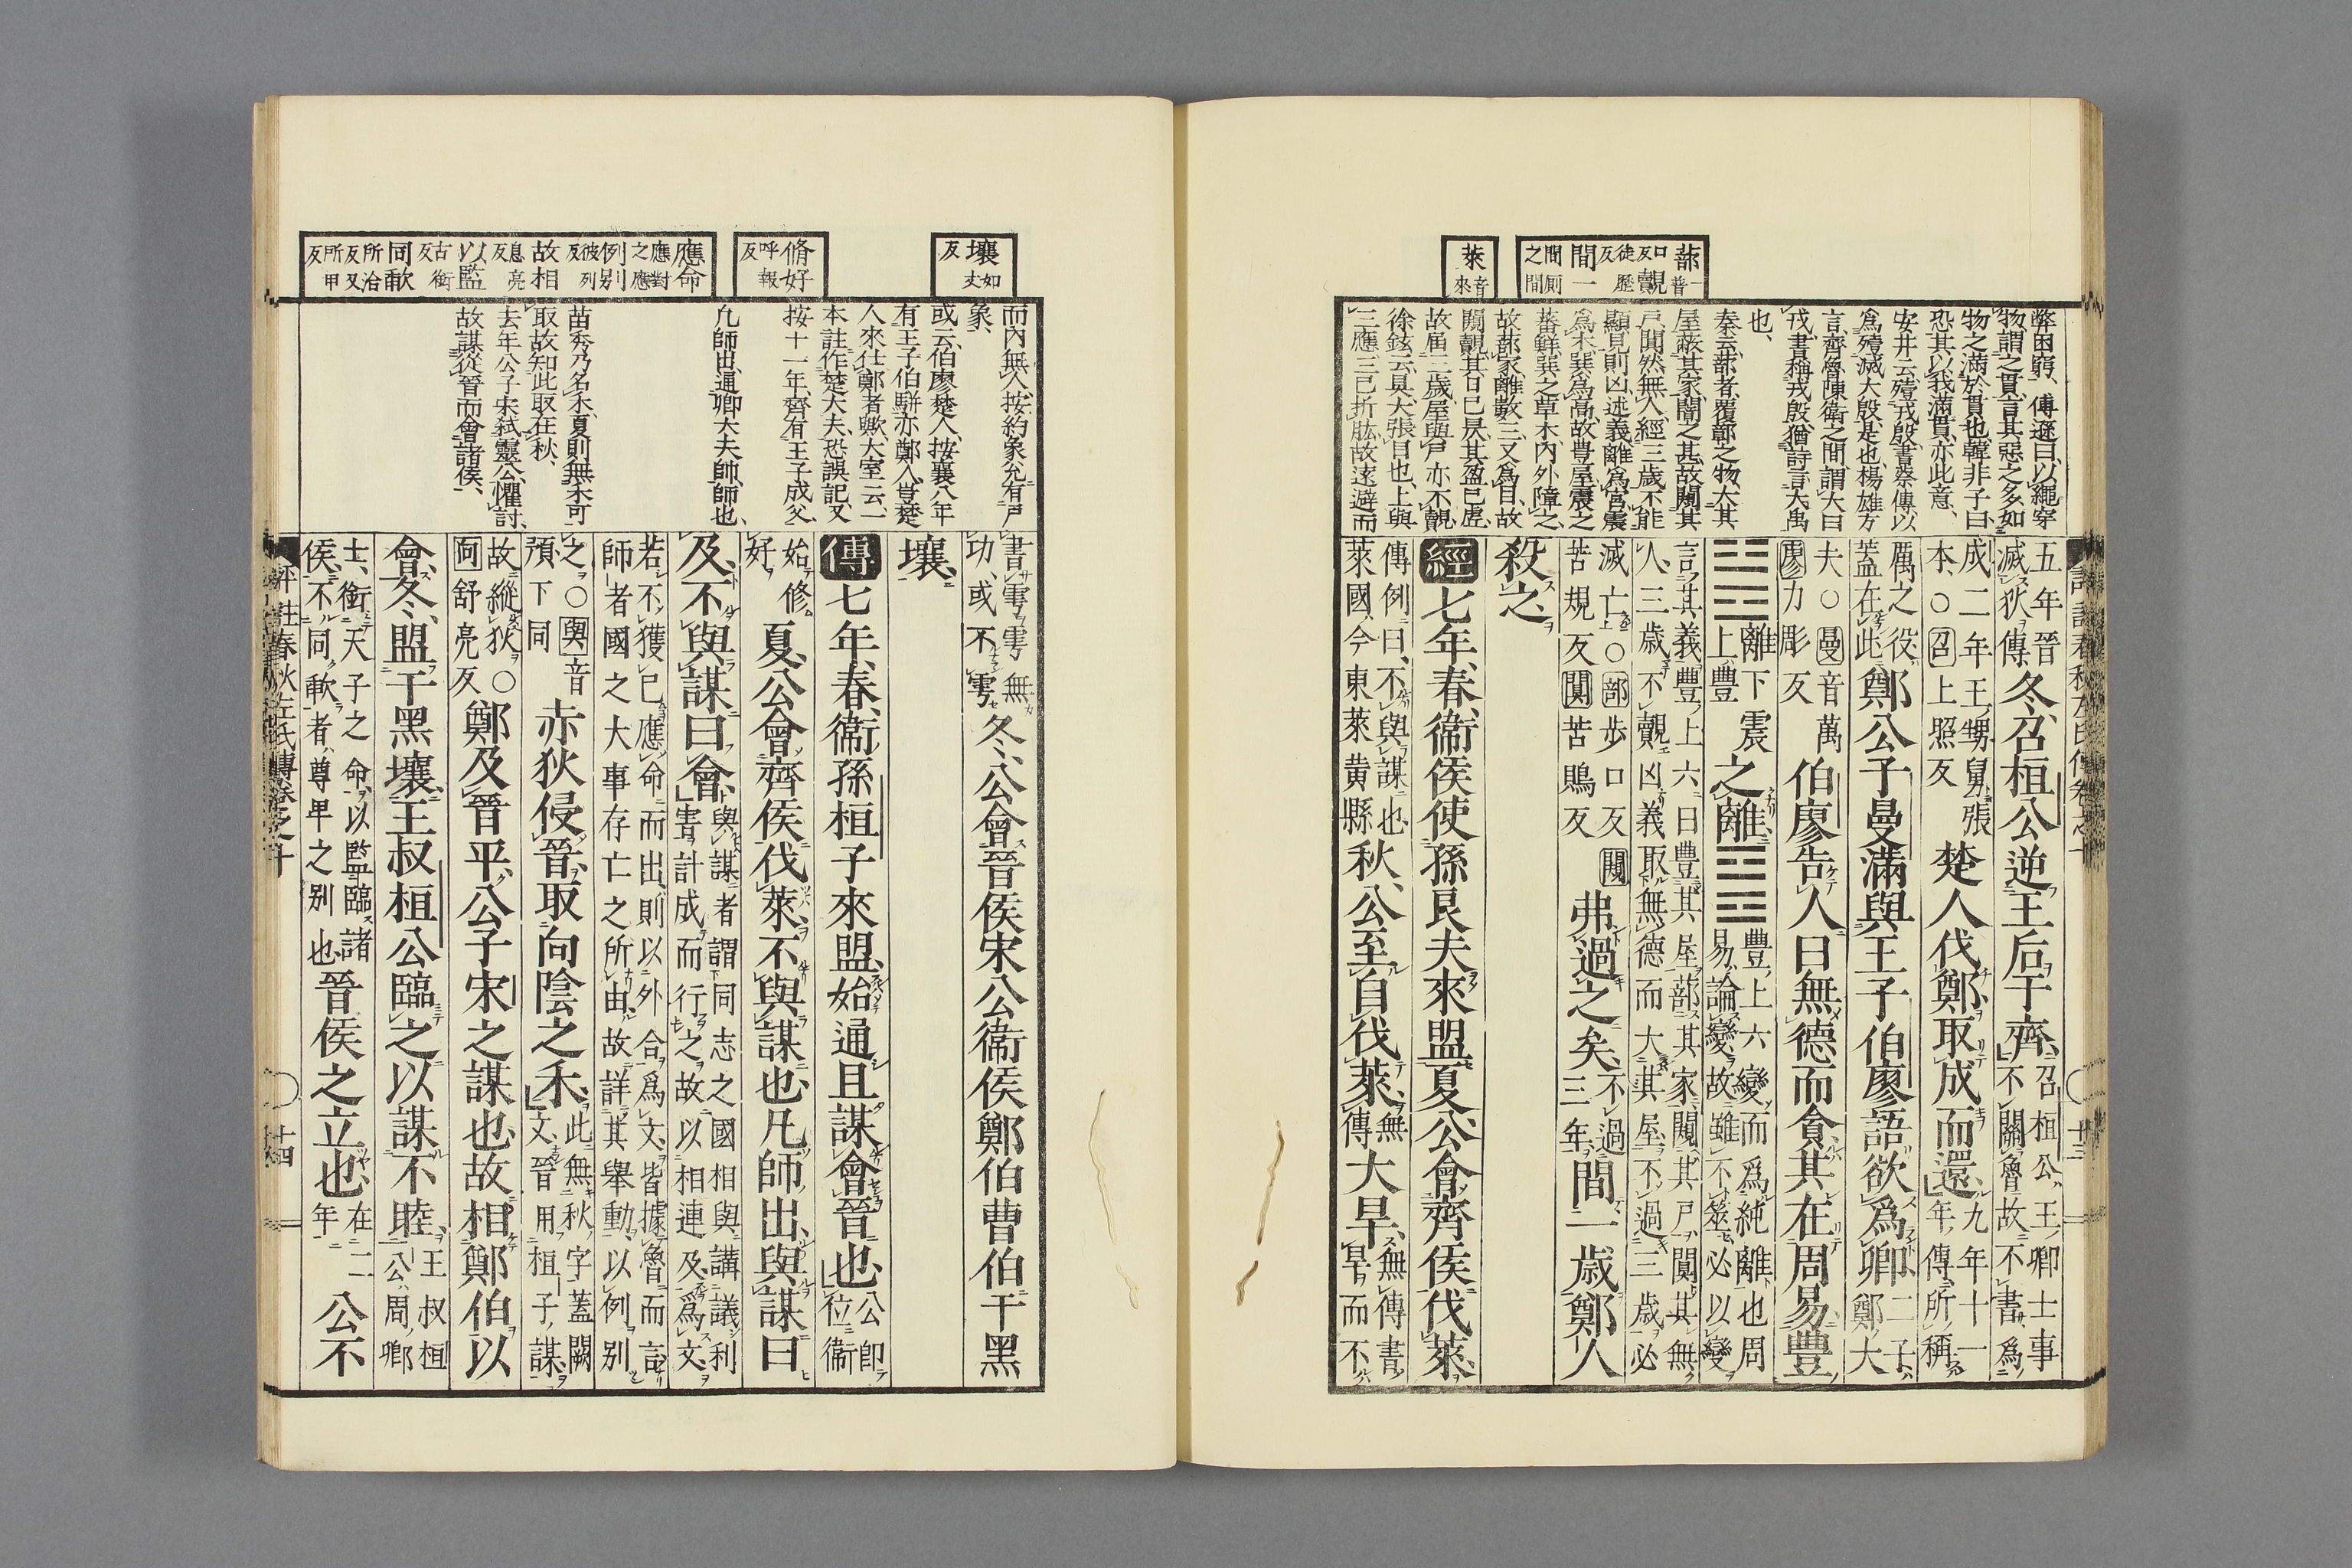 蔀一普口反覿徒歷反間一間厠之間
萊音來
弊困窮、傅遜曰、以繩穿
物、謂之貫、言其惡之多、如
物之滿於貫也、韓非子曰、
恐其以我滿貫、亦此意、
安井云、殪戎殷、書蔡傳以
爲殪滅大殷、是也、楊雄方
言、齊魯陳衛之間、謂大曰
戎、書稱戎殷、猶詩言大禹
也、
秦云、蔀者、覆鄣之物、大其
屋、蔽其家、闇之甚、故闚其
戶、闃然無人、經三歲不能
顯見則凶、述義、離爲宮、震
爲木、巽爲高、故豐屋、震之
蕃鮮、巽之草木、内外障之、
故蔀家、離數三、又爲目、故
闚覿、其日已昃、其盈已虛、
故雖三歲、屋與戶亦不覿、
徐鉉云、㫤、大張目也、上與
三應、三已折肱、故遂避而
五年晉成二年王甥舅張
滅狄傳冬、召桓公逆王后于齊、召桓公、王卿士事不關魯、故不書、爲
成二年、王甥舅張本、○召上照反楚人伐鄭、取成而還、九年十一年傳所稱
厲之役、蓋在此鄭公子曼滿與王子伯廖語、欲爲卿、二子、鄭大
夫○曼音萬廖力彫反伯廖告人曰、無德而貪、其在周易豐
離下震上豐之離、豐上六變而爲純離也、周易論變、故雖不筮、必以變
言其義、豐上六曰、豐其屋、蔀其家、闚其戶、闃其無人、三歲不覿、凶、義取無德而大其屋、不過三歲必
滅亡○蔀步口反闚苦規反闃苦鵙反弗過之矣、不過三年間一歲、鄭人
殺之、
經七年、春、衛侯使孫良夫來盟、夏、公會齊侯伐萊、
傳例曰、不與謀也、萊國、今東萊黃縣秋、公至自伐萊、無傳大旱、無傳書旱而不
壤如丈反
脩好呼報反
應命應對之應例別彼列反故相息亮反以監古銜反同歃所洽反又所甲反
而内無人、按約象允有戶
象、
或云、伯廖楚人、按襄八年
有王子伯騈、亦鄭人、豈楚
人來仕鄭者歟、大室云、一
本註作楚大夫、恐誤記、又
按十一年、齊有王子成父、
凡師出、通卿大夫帥師也、
苗秀乃名禾、夏則無禾可
取、故知此取在秋、
去年公子宋弒靈公、懼討、
故謀從晉而會諸侯、
書雩、雩無功、或不雩冬、公會晉侯宋公衛侯鄭伯曹伯于黑
壤、
傳七年、春、衛孫桓子來盟、始通、且謀會晉也、公即位、衛
始修好夏、公會齊侯伐萊、不與謀也、凡師出、與謀曰
及、不與謀曰會、與謀者、謂同志之國、相與講議利書、計成而行之、故以相連及爲文、
若不獲已、應命而出、則以外合爲文、皆據魯而言、師者國之大事、存亡之所由、故詳其舉動、以例別
之○與音預下同赤狄侵晉、取向陰之禾、此無秋字、蓋闕文、晉用桓子謀、
故縱狄○向舒亮反鄭及晉平、公子宋之謀也、故相鄭伯以
會、冬、盟于黑壤、王叔桓公臨之、以謀不睦、王叔桓公、周卿
士、銜天子之命、以監臨諸侯、不同歃者、尊卑之別也晉侯之立也、在二年公不
評註春秋左氏傳卷之十
十四